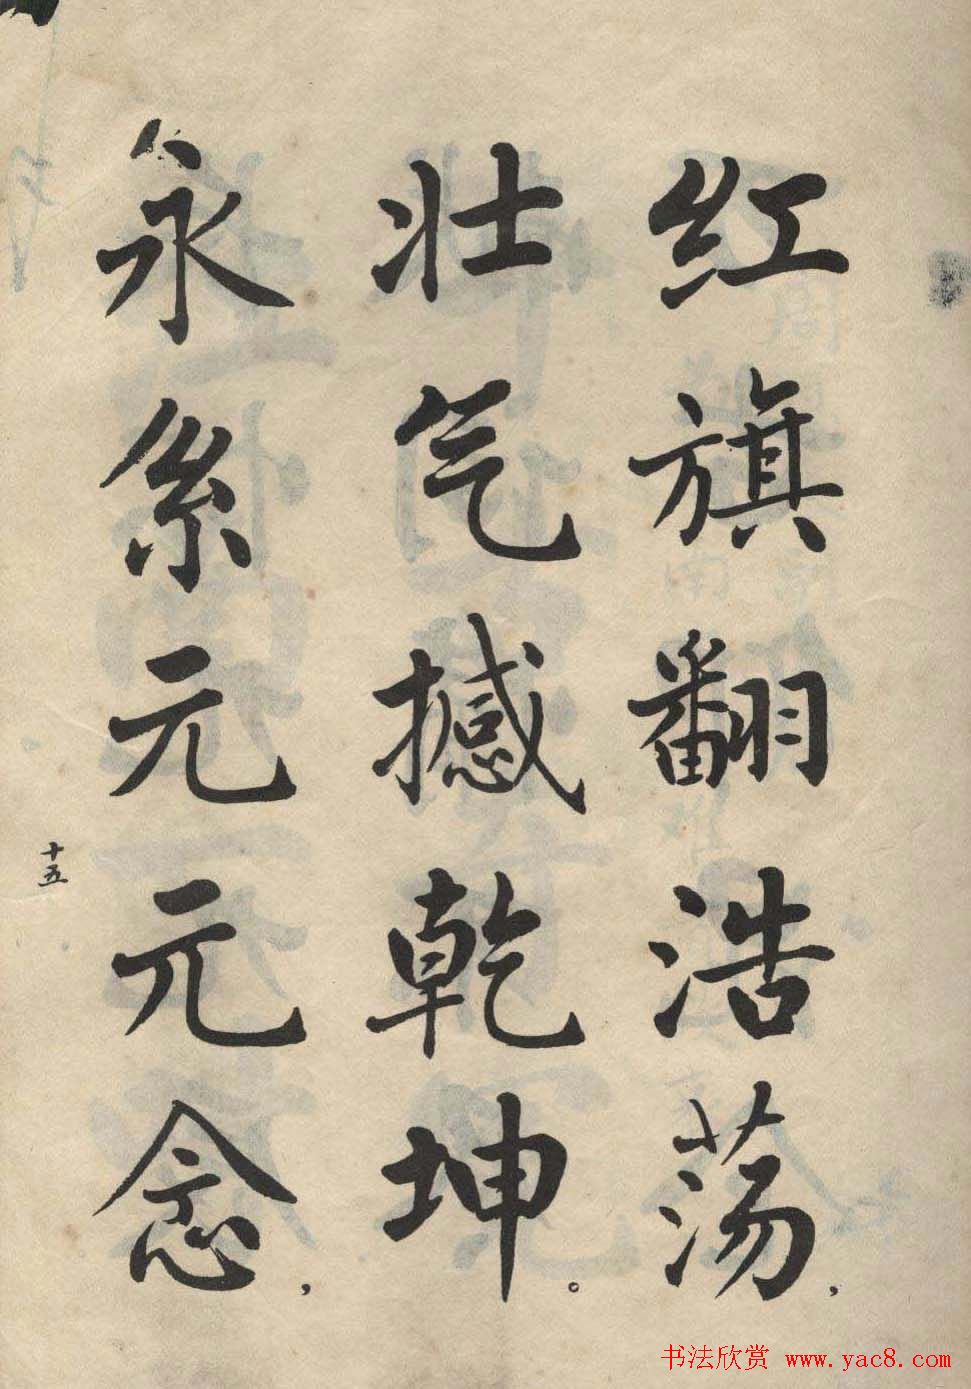 红旗翻浩荡，
壮气撼乾坤。
永系元元念，
十五
书法欣赏 www.yac8.com